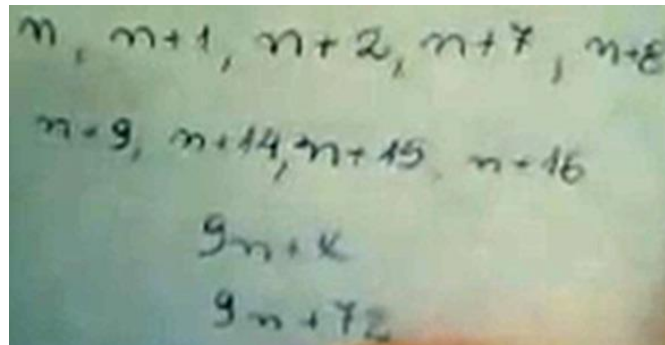 n, n+1, n+2, n+7, n+8
n+9, n+14, n+15, n+16
9n+x
9n+72